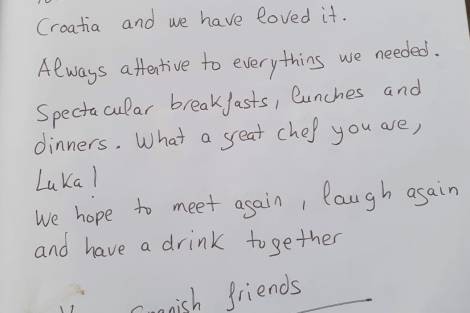 Croatia and we have loved it.
Always attentive to everything we needed.
Spectacular breakfasts, lunches and
dinners. What a great chef you are,
Luka!
We hope to meet again, laugh again
and have a drink together
friends